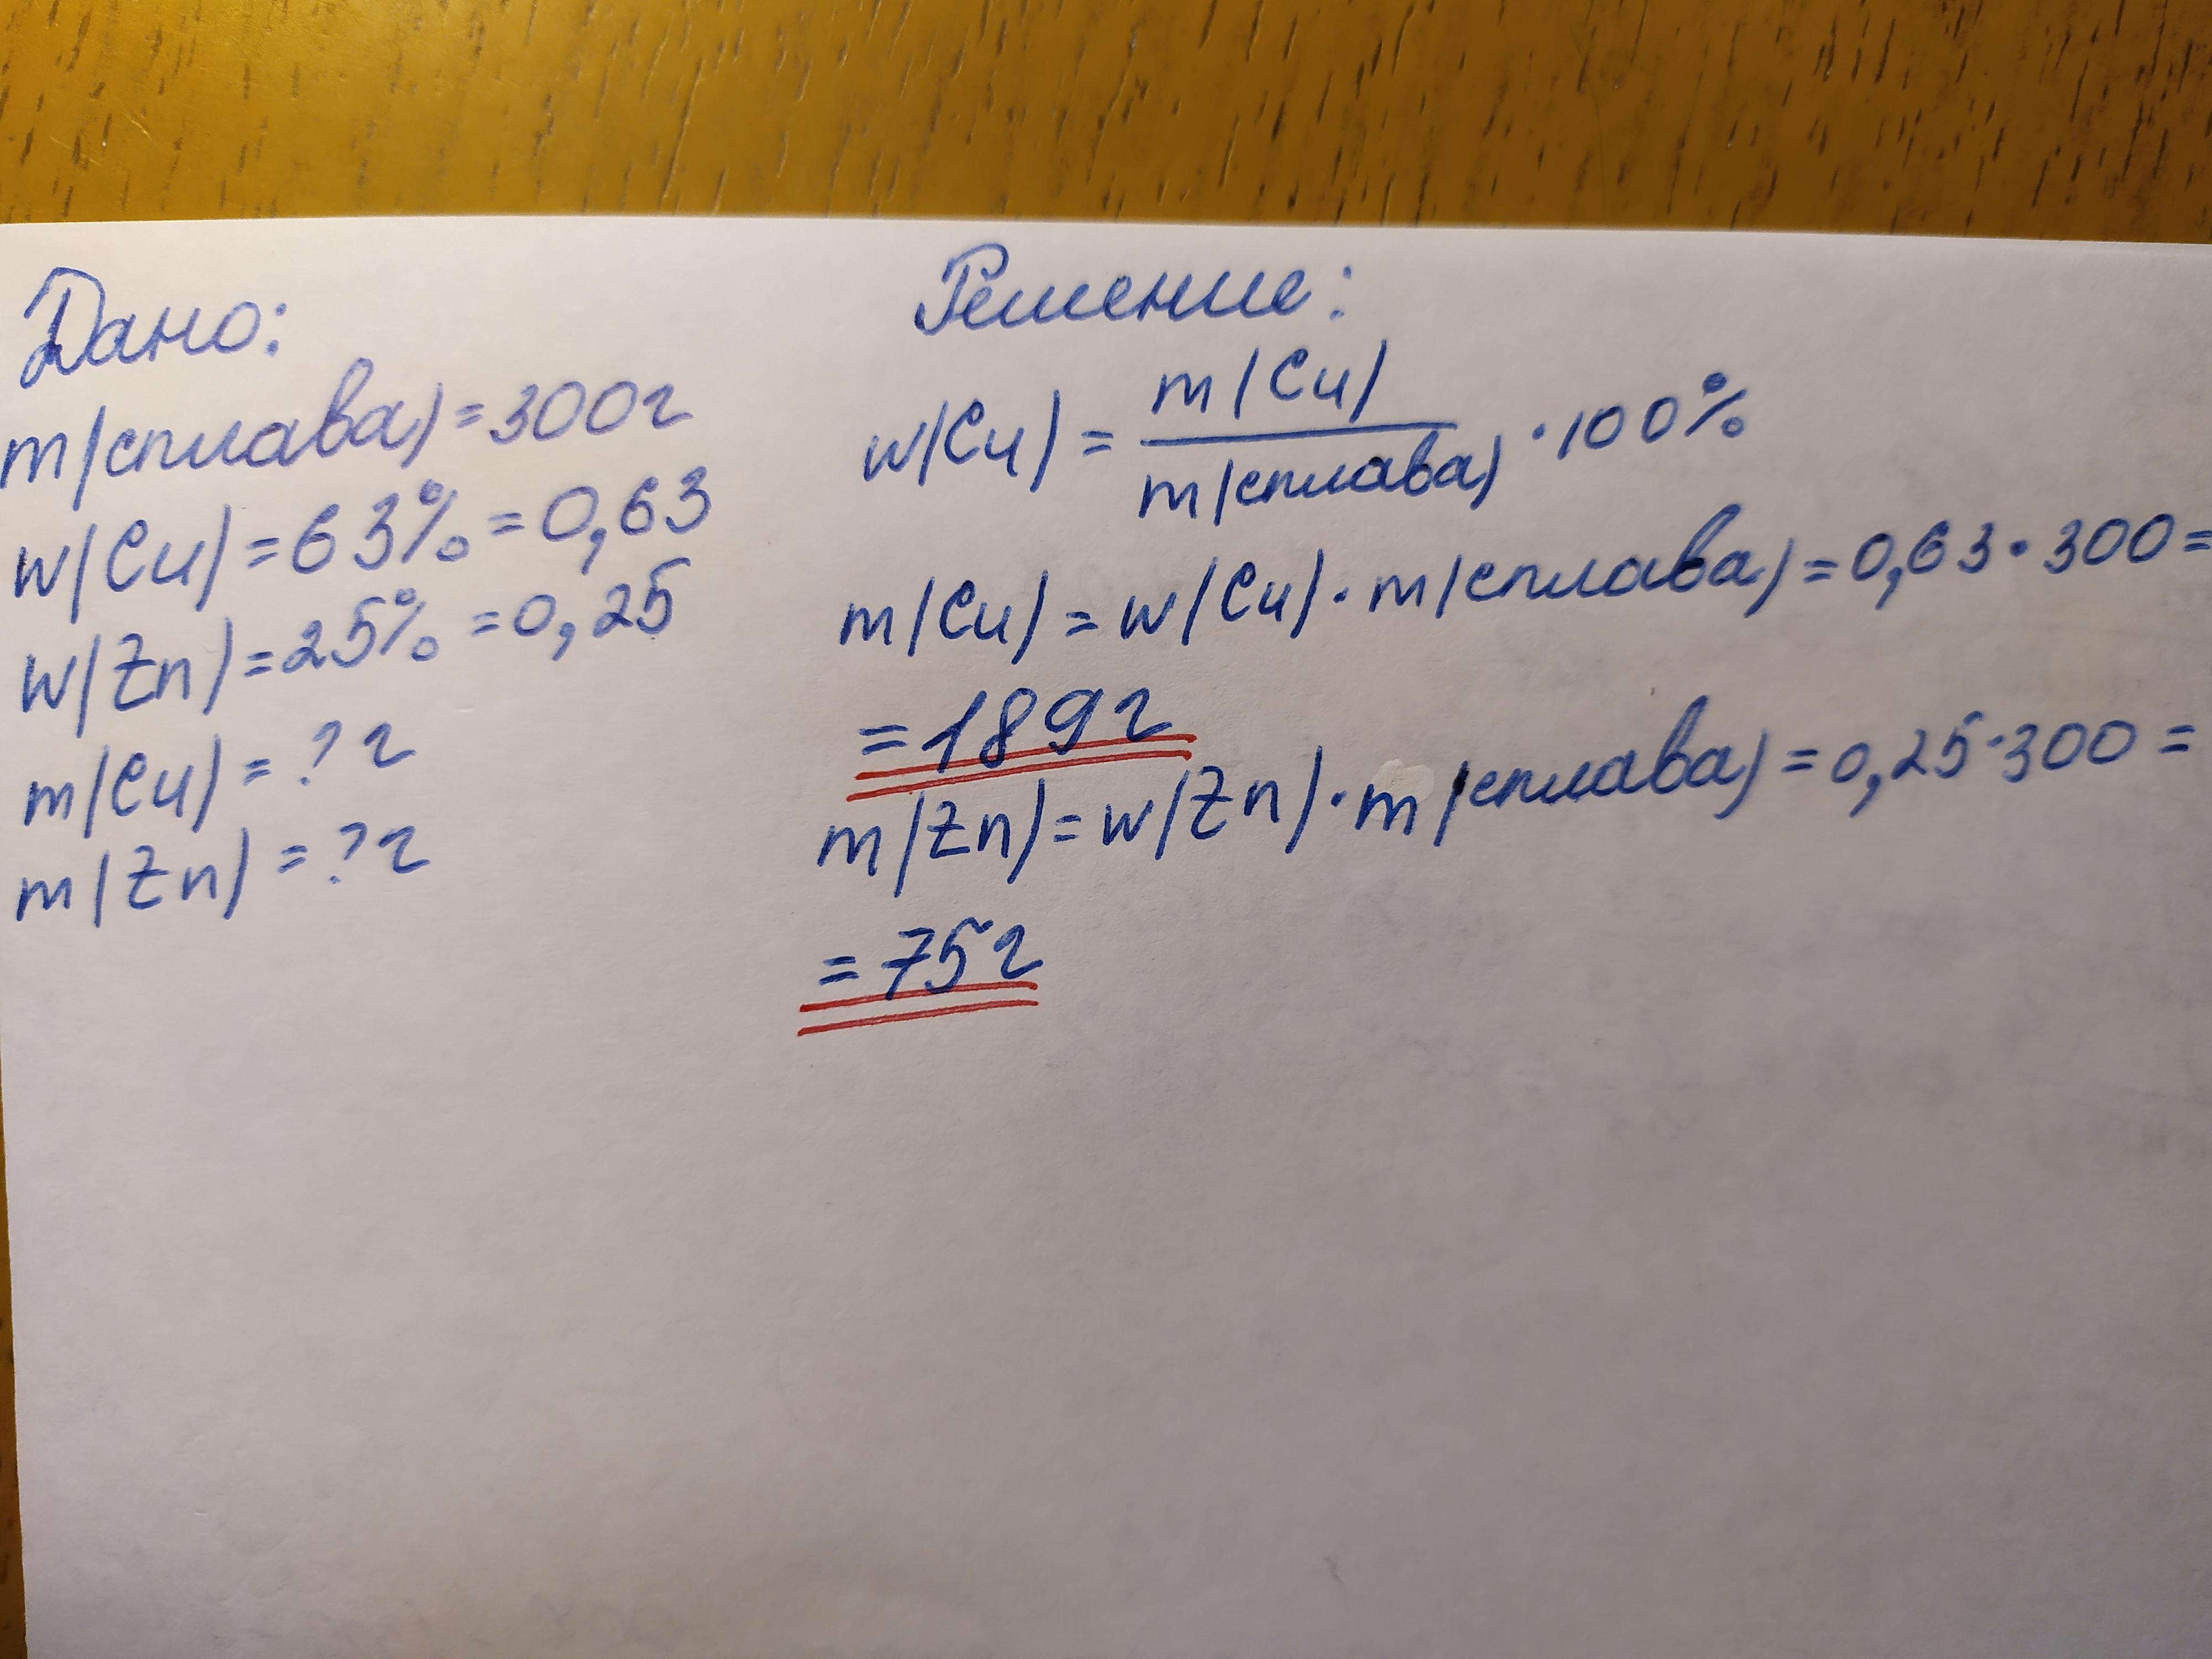 Дано:
m(сплава)=300г
w(Cu)=63%=0,63
w(Zn)=25%=0,25
m(Cu)=?г
m(Zn)=?г
Решение:
w(Cu) = m(Cu) / m(сплава) · 100%
m(Cu) = w(Cu) · m(сплава) = 0,63 · 300 =
= 189г
m(Zn) = w(Zn) · m(сплава) = 0,25·300 =
= 75г